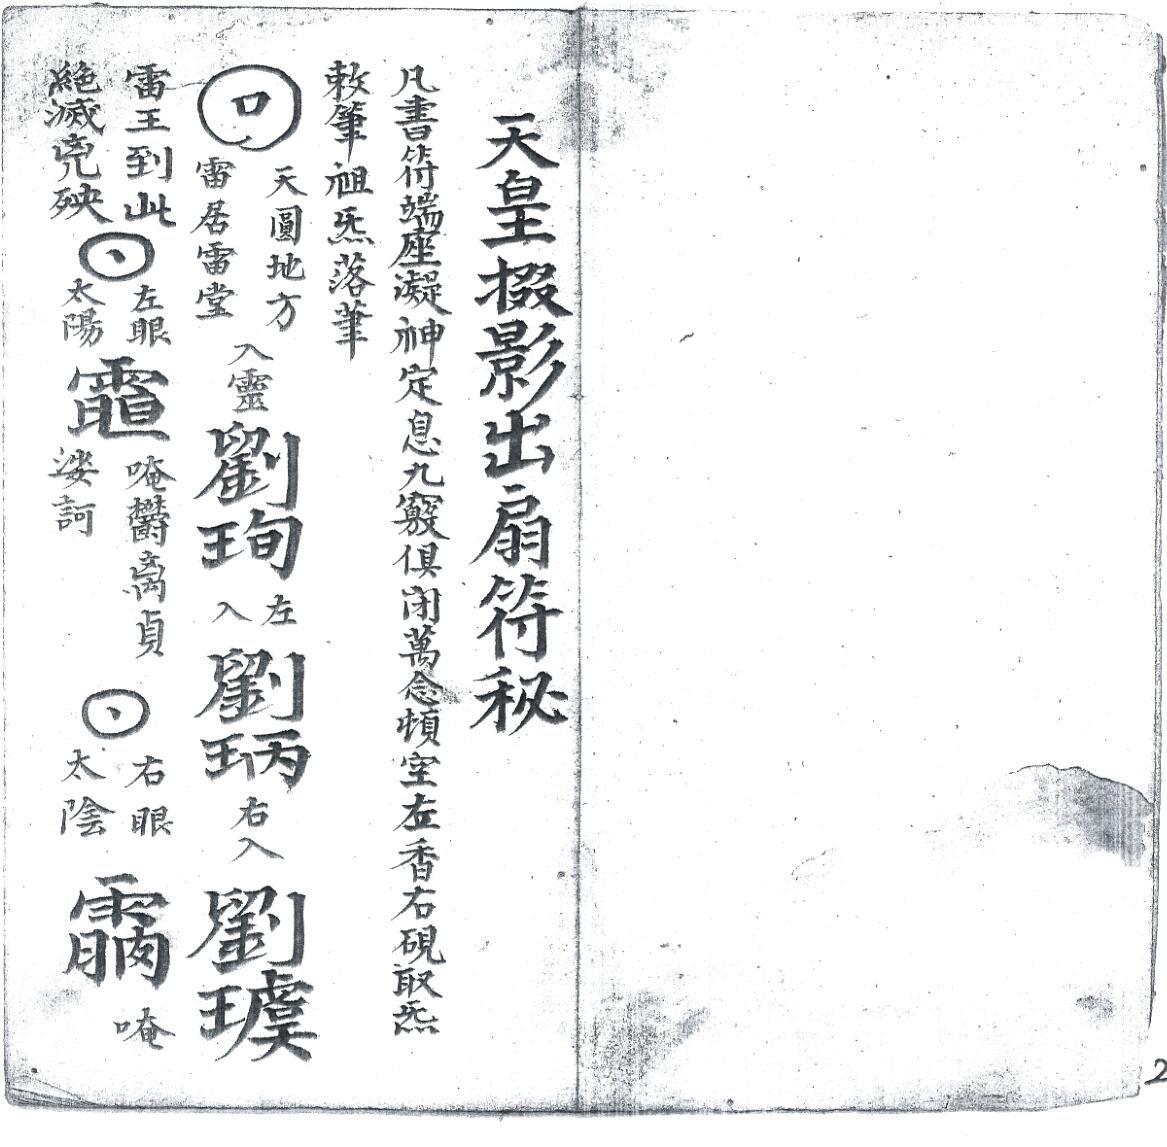 天皇掇影出扇符秘
凡書符端座凝神定息九竅俱閉萬念頓空左香右硯取炁
敕筆祖炁落筆
口
天圓地方
雷居雷堂
入靈
劉珣
左
入
劉琇
右
入
劉琥
雷王到此
絕滅兇殃
左眼
太陽
唵欝离貞
娑訶
右眼
太陰
唵
2